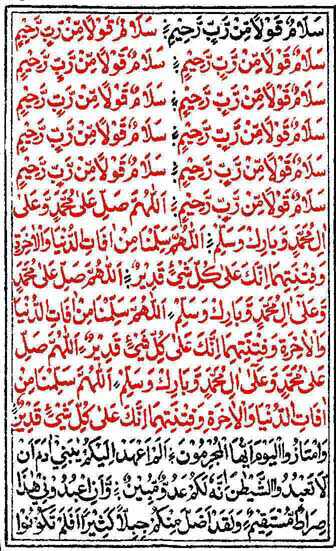 سَلَامٌ قَوْلًا مِّنْ رَّبٍّ رَّحِيْمٍ ۞ سَلَامٌ قَوْلًا مِّنْ رَّبٍّ رَّحِيْمٍ
سَلَامٌ قَوْلًا مِّنْ رَّبٍّ رَّحِيْمٍ ۞ سَلَامٌ قَوْلًا مِّنْ رَّبٍّ رَّحِيْمٍ
سَلَامٌ قَوْلًا مِّنْ رَّبٍّ رَّحِيْمٍ ۞ سَلَامٌ قَوْلًا مِّنْ رَّبٍّ رَّحِيْمٍ
سَلَامٌ قَوْلًا مِّنْ رَّبٍّ رَّحِيْمٍ ۞ سَلَامٌ قَوْلًا مِّنْ رَّبٍّ رَّحِيْمٍ
سَلَامٌ قَوْلًا مِّنْ رَّبٍّ رَّحِيْمٍ ۞ سَلَامٌ قَوْلًا مِّنْ رَّبٍّ رَّحِيْمٍ
سَلَامٌ قَوْلًا مِّنْ رَّبٍّ رَّحِيْمٍ ۞ اَللّٰهُمَّ صَلِّ عَلٰى مُحَمَّدٍ وَّعَلٰى
اٰلِ مُحَمَّدٍ وَّبَارِكْ وَسَلِّمْ ۞ اَللّٰهُمَّ سَلِّمْنَا مِنْ اٰفَاتِ الدُّنْيَا وَالْاٰخِرَةِ
وَفِتْنَتِهِمَا اِنَّكَ عَلٰى كُلِّ شَيْءٍ قَدِيْرٌ ۞ اَللّٰهُمَّ صَلِّ عَلٰى مُحَمَّدٍ
وَّعَلٰى اٰلِ مُحَمَّدٍ وَّبَارِكْ وَسَلِّمْ ۞ اَللّٰهُمَّ سَلِّمْنَا مِنْ اٰفَاتِ الدُّنْيَا
وَالْاٰخِرَةِ وَفِتْنَتِهِمَا اِنَّكَ عَلٰى كُلِّ شَيْءٍ قَدِيْرٌ ۞ اَللّٰهُمَّ صَلِّ
عَلٰى مُحَمَّدٍ وَّعَلٰى اٰلِ مُحَمَّدٍ وَّبَارِكْ وَسَلِّمْ ۞ اَللّٰهُمَّ سَلِّمْنَا مِنْ
اٰفَاتِ الدُّنْيَا وَالْاٰخِرَةِ وَفِتْنَتِهِمَا اِنَّكَ عَلٰى كُلِّ شَيْءٍ قَدِيْرٌ
وَامْتَازُوا الْيَوْمَ اَيُّهَا الْمُجْرِمُوْنَ ۞ اَلَمْ اَعْهَدْ اِلَيْكُمْ يٰبَنِيْٓ اٰدَمَ اَنْ
لَّا تَعْبُدُوا الشَّيْطٰنَ اِنَّهٗ لَكُمْ عَدُوٌّ مُّبِيْنٌ ۞ وَّاَنِ اعْبُدُوْنِيْ هٰذَا
صِرَاطٌ مُّسْتَقِيْمٌ ۞ وَلَقَدْ اَضَلَّ مِنْكُمْ جِبِلًّا كَثِيْرًا اَفَلَمْ تَكُوْنُوْا